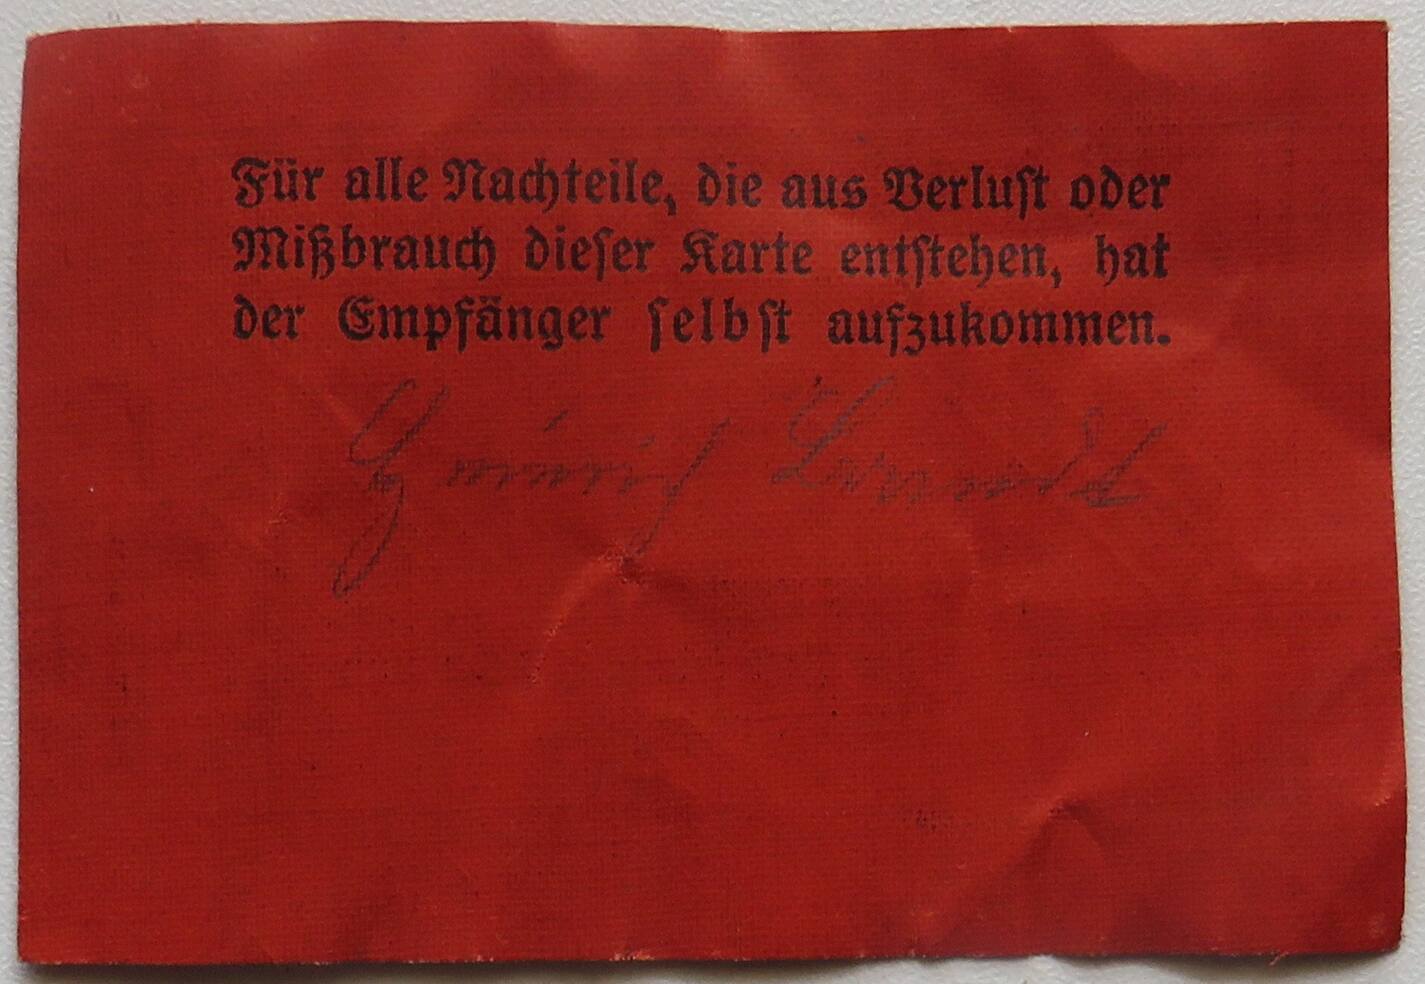 Für alle Nachteile, die aus Verlust oder
Mißbrauch dieser Karte entstehen, hat
der Empfänger selbst aufzukommen.